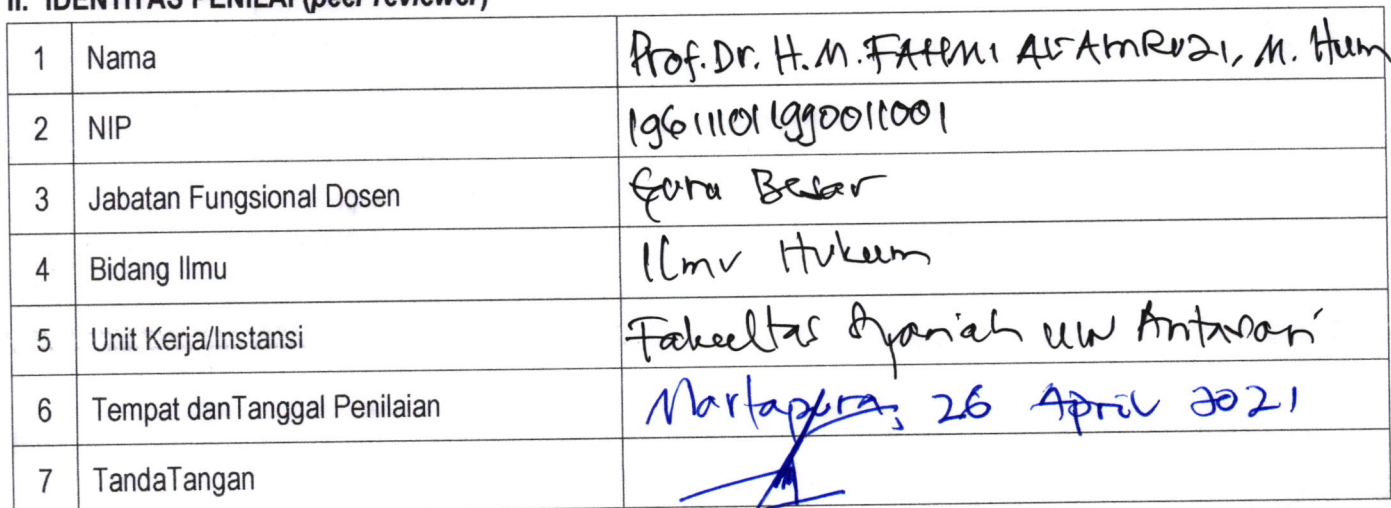 II. IDENTITAS PENILAI (peer reviewer)
1 Nama Prof. Dr. H. M. FAHMI AL-AMRUZI, M. Hum
2 NIP 196111011990011001
3 Jabatan Fungsional Dosen Guru Besar
4 Bidang Ilmu Ilmu Hukum
5 Unit Kerja/Instansi Fakultas Syariah UIN Antasari
6 Tempat danTanggal Penilaian Martapura, 26 April 2021
7 TandaTangan